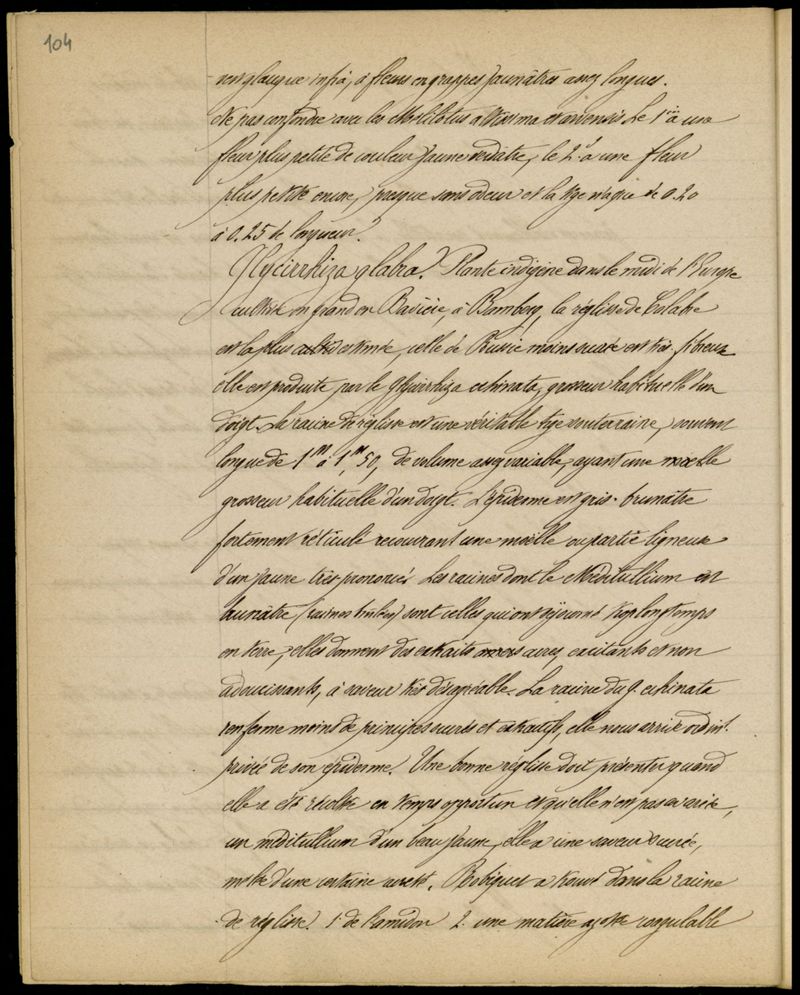 104
vert glauque infrà, à fleurs en grappes jaunâtres assez longues.
Ne pas confondre avec les Melilotus altissima et arvensis. Le 1er a une
fleur plus petite de couleur jaune verdâtre, le 2e a une fleur
plus petite encore, presque sans odeur et la tige n'a que de 0.20
à 0.25 de longueur.
Glycirrhiza glabra. Plante indigène dans le midi de l'Europe
cultivée en grand en Bavière, à Bamberg, la réglisse de Calabre
est la plus estimée, celle de Russie moins sucrée est très fibreuse
elle est produite par le Glycirrhiza echinata, grosseur habituelle d'un
doigt. La racine de réglisse est une véritable tige souterraine, souvent
longue de 1m à 1m,50, de volume assez variable, ayant une
grosseur habituelle d'un doigt. L'épiderme est gris-brunâtre
fortement réticulé recouvrant une moëlle ou partie ligneuse
d'un jaune très prononcé. Les racines dont le Méditullium est
brunâtre (racines brûlées) sont celles qui ont séjourné trop longtemps
en terre, elles donnent des extraits acres, excitants et non
adoucissants, à saveur très désagréable. La racine du G. echinata
renferme moins de principes sucrés et extractifs, elle nous arrive ordint.
privée de son épiderme. Une bonne réglisse doit présenter quand
elle a été récoltée en temps opportun et qu'elle n'est pas avariée,
un méditullium d'un beau jaune, elle a une saveur sucrée,
mêlée d'une certaine acreté. Robiquet a trouvé dans la racine
de réglisse. 1: de l'amidon 2: une matière azotée coagulable